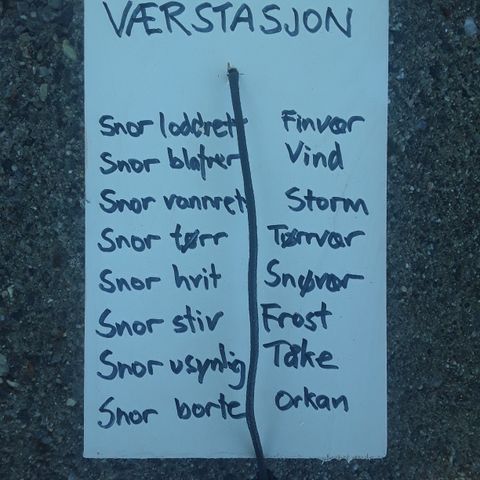 VÆRSTASJON
Snor loddrett Finvær
Snor blafrer Vind
Snor vannret Storm
Snor tørr Tørrvær
Snor hvit Snøvær
Snor stiv Frost
Snor usynlig Tåke
Snor borte Orkan